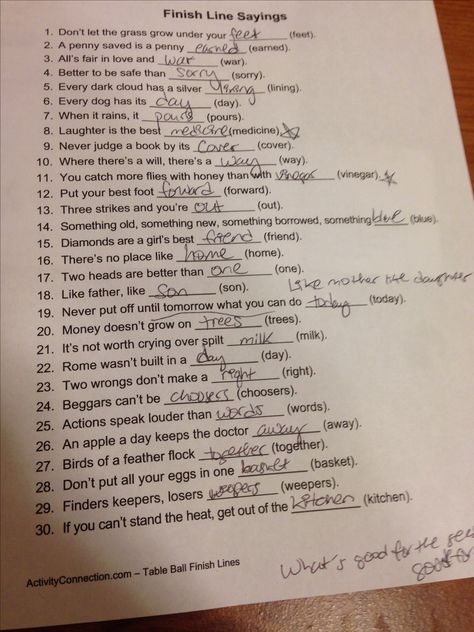 Finish Line Sayings
1. Don't let the grass grow under your feet (feet).
2. A penny saved is a penny earned (earned).
3. All's fair in love and war (war).
4. Better to be safe than sorry (sorry).
5. Every dark cloud has a silver lining (lining).
6. Every dog has its day (day).
7. When it rains, it pours (pours).
8. Laughter is the best medicine (medicine).
9. Never judge a book by its cover (cover).
10. Where there's a will, there's a way (way).
11. You catch more flies with honey than with vinegar (vinegar).
12. Put your best foot forward (forward).
13. Three strikes and you're out (out).
14. Something old, something new, something borrowed, something blue (blue).
15. Diamonds are a girl's best friend (friend).
16. There's no place like home (home).
17. Two heads are better than one (one).
18. Like father, like son (son). Like mother like daughter
19. Never put off until tomorrow what you can do today (today).
20. Money doesn't grow on trees (trees).
21. It's not worth crying over spilt milk (milk).
22. Rome wasn't built in a day (day).
23. Two wrongs don't make a right (right).
24. Beggars can't be choosers (choosers).
25. Actions speak louder than words (words).
26. An apple a day keeps the doctor away (away).
27. Birds of a feather flock together (together).
28. Don't put all your eggs in one basket (basket).
29. Finders keepers, losers weepers (weepers).
30. If you can't stand the heat, get out of the kitchen (kitchen).
What's good for the
good for
ActivityConnection.com – Table Ball Finish Lines